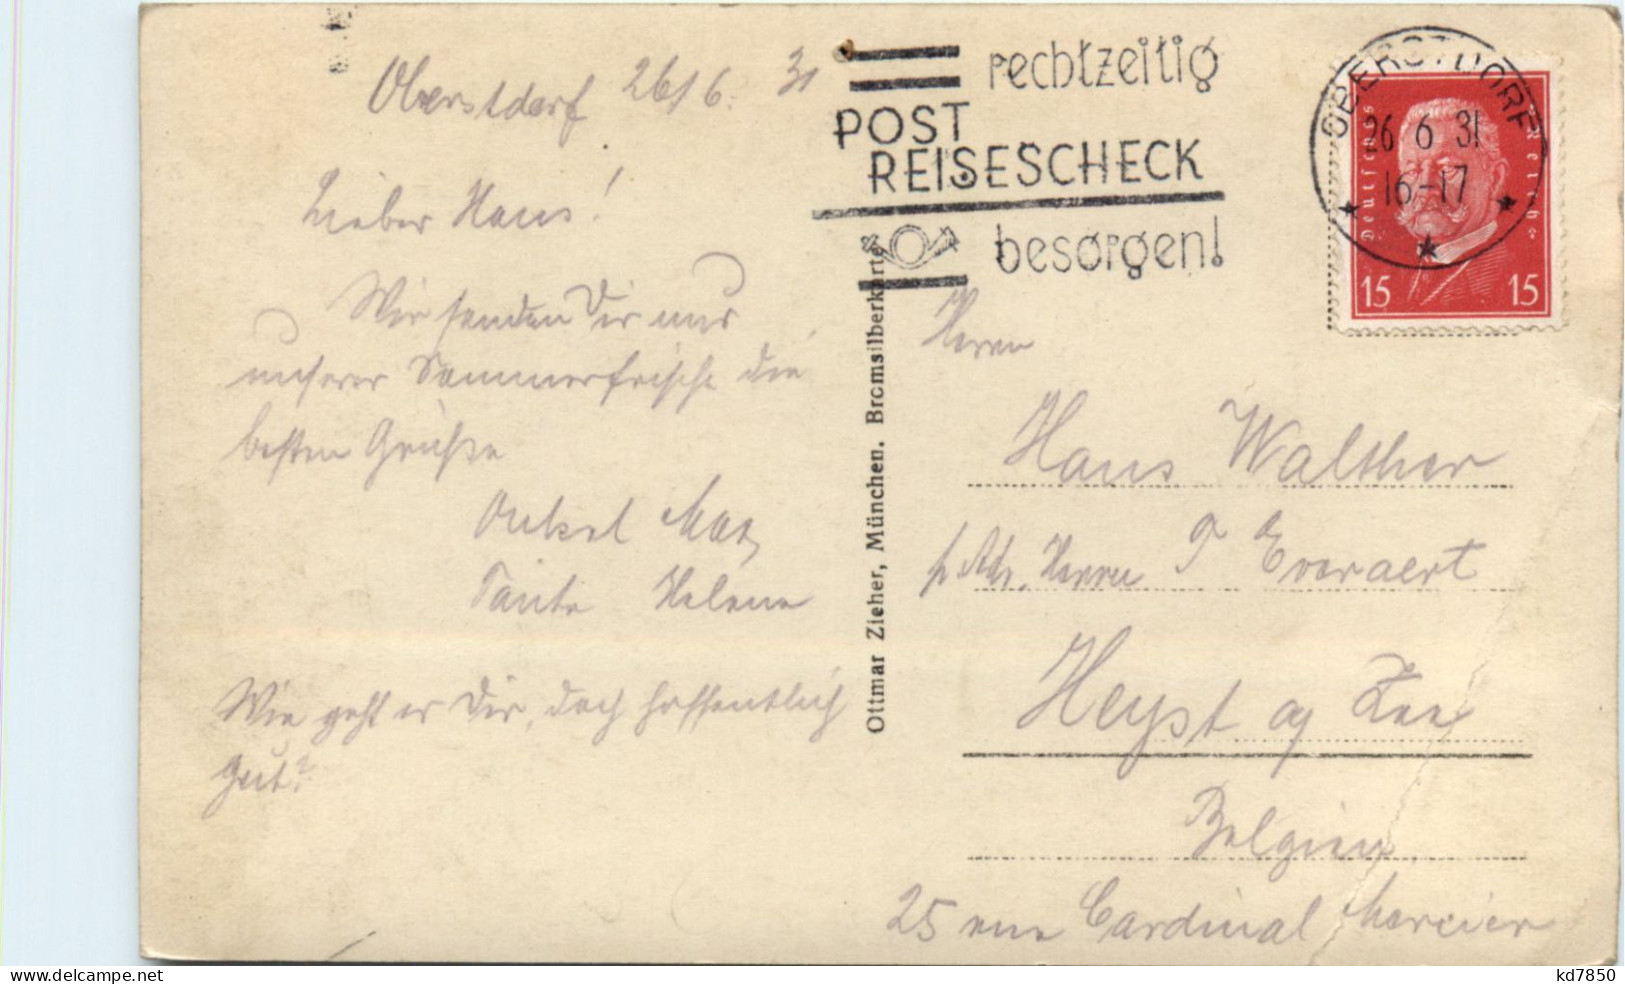 Oberstdorf 26/6. 31
Lieber Hans!
Wir senden Dir aus
unserer Sommerfrische die
besten Grüße
Onkel Max,
Tante Helene
Wie geht es Dir, doch hoffentlich
gut?
rechtzeitig
POST
REISESCHECK
besorgen!
OBERSTDORF
26 6 31
16-17
Deutsches Reich
15 15
Ottmar Zieher, München. Bromsilberkarte
Herrn
Hans Walther
p. Adr. Herrn T Everaert
Heyst a/ Zee
Belgien
25 rue Cardinal Mercier
delcampe.net
kd7850